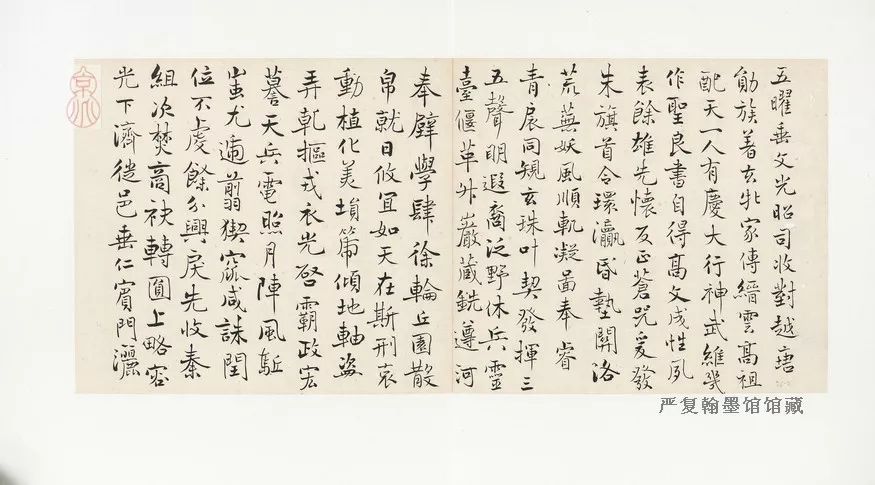 五曜垂文光昭司牧對越唐
勛族著玄牝家傳縉雲高祖
配天一人有慶大行神武維幾
作聖良書自得高文成性夙
表餘雄先懷反正蒼兕爰發
朱旗首令環瀛昏墊關洛
荒蕪妖風順軌凝圖奉睿
青扆同規玄珠叶契發揮三
五聲明遐裔泛野休兵靈
臺偃革外嚴藏銑遵河
奉璧學肆徐輪丘園散
帛就日攸宜如天在斯刑哀
動植化美塤箎傾地軸盜
弄乾樞戎衣光啓霸政宏
謩天兵電照月陣風駈
蚩尤遄翦猰窳咸誅閏
位不虔餘分興戾先收秦
組次焚商袂轉圓上略容
光下濟從邑垂仁賓門灑
严复翰墨馆馆藏